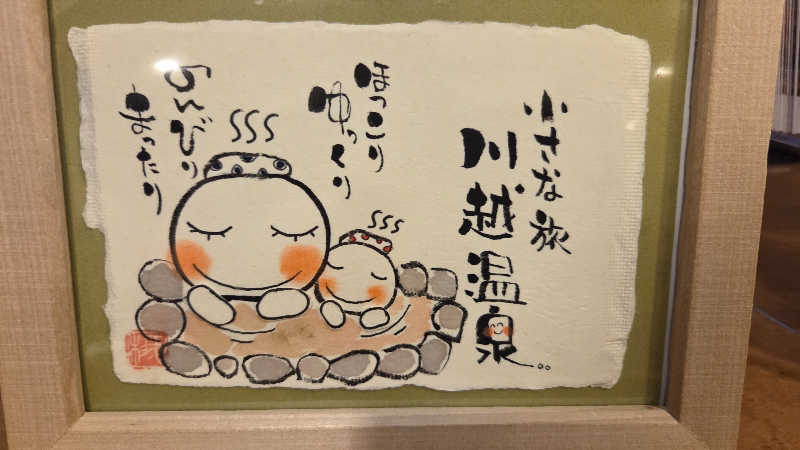 小さな旅
川越温泉
ほっこり
ゆっくり
のんびり
まったり